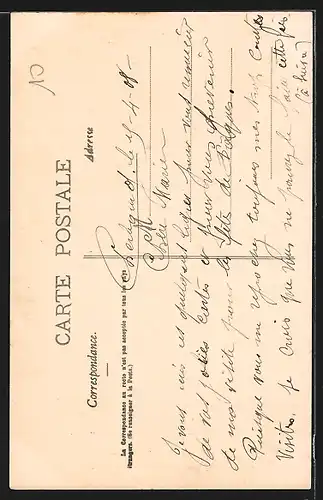 10
CARTE POSTALE
Correspondance.
Adresse
La Correspondance au recto n'est pas acceptée par tous les pays
étrangers. (Se renseigner à la Poste.)
le 15-4-08-
Chère Marie
Je vous mis ces quelques lignes pour vous remercier
de vos jolies cartes et pour vous prévenir
de ma visite pour les fêtes de Pâques.
Puisque vous me reprochez toujours mes trop courtes
visites. Je crois que vous ne pourrez le faire cette fois
(à suivre)